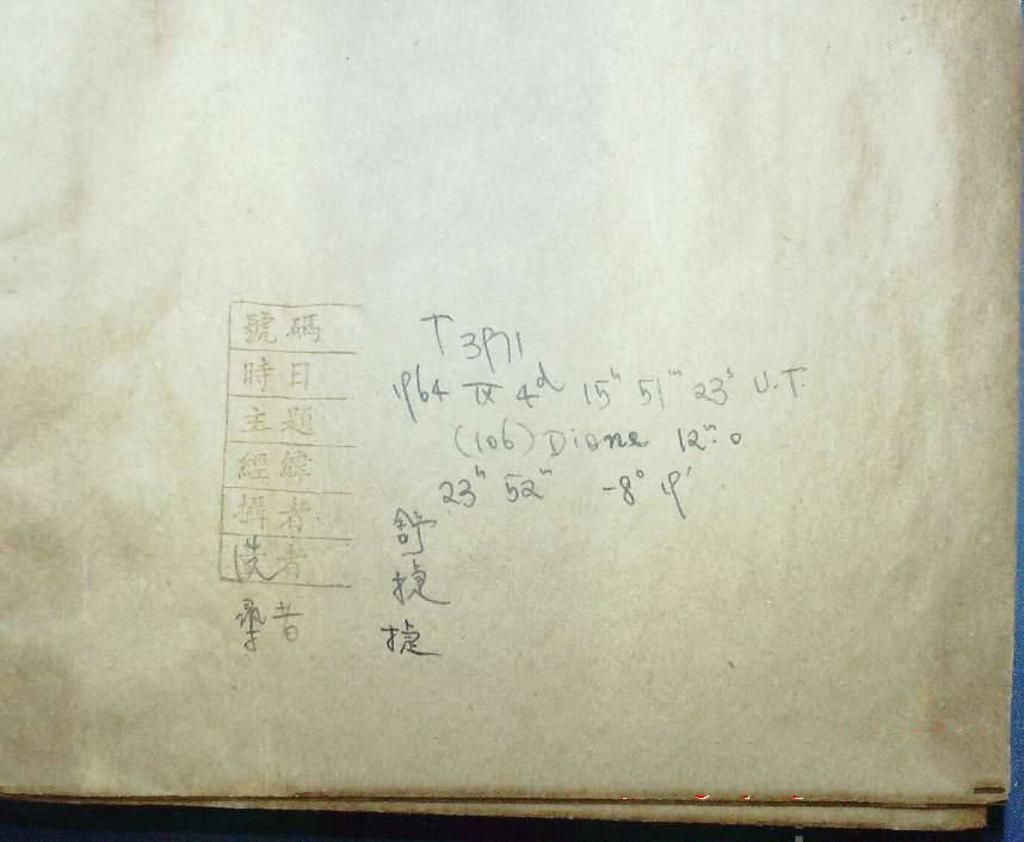 號碼 T 3971
時日 1964 IX 4ᵈ 15ʰ 51ᵐ 23ˢ U.T.
主題 (106) Dione 12ᵐ.0
經緯 23ʰ 52ᵐ -8° 19'
攝者 舒
者 捷
者 捷